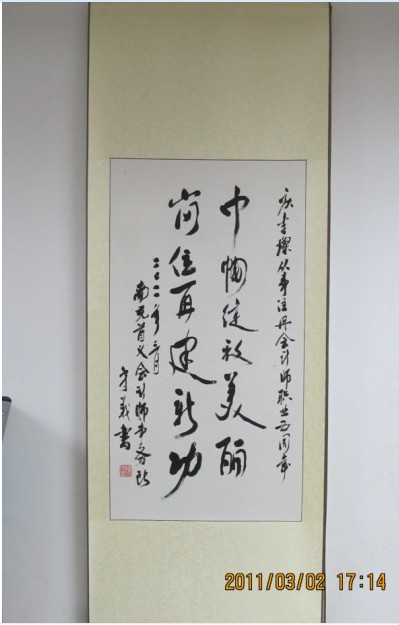 庆李灿从事注册会计师职业五周年
巾帼绽放美丽
岗位再建新功
二〇一一年三月
南充首义会计师事务所
守义书
2011/03/02 17:14